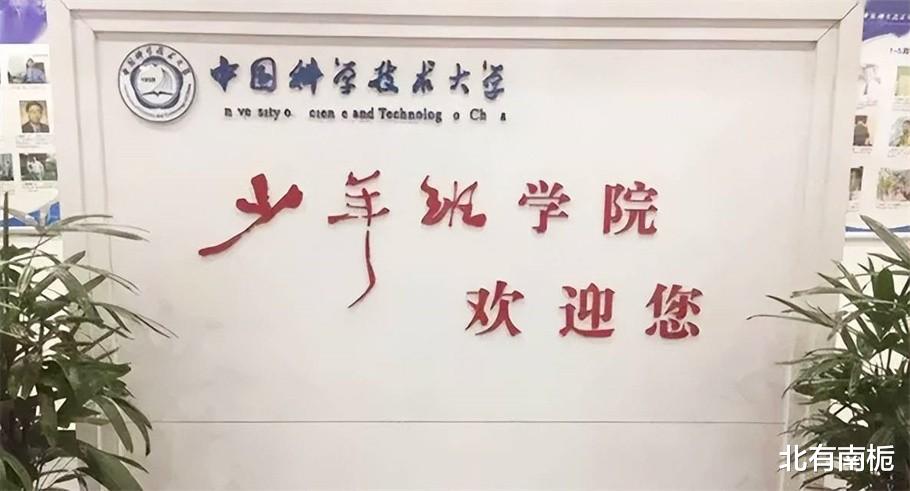 中国科学技术大学
n ve sity o cien e and Technolog o Ch a
少年班学院
欢迎您
1958
北有南栀